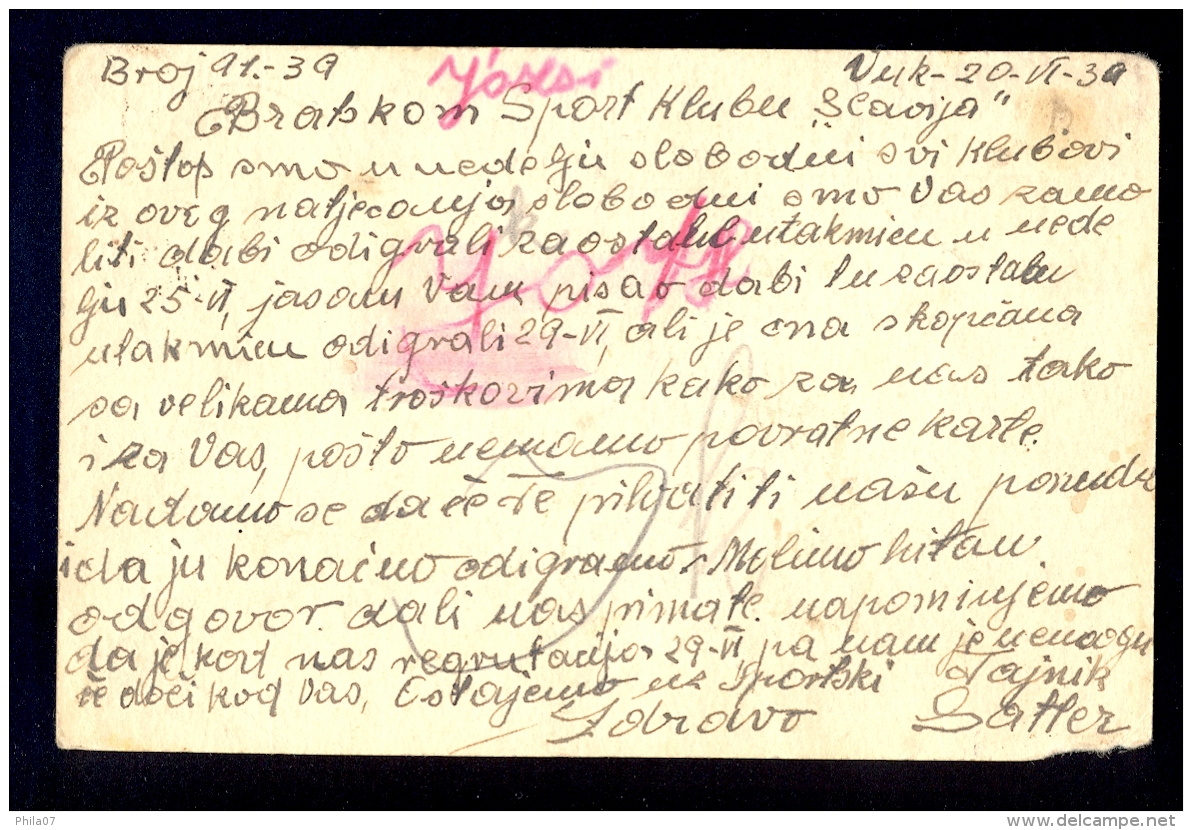 Broj 91.-39
Vuk-20-VI-39
Bratskom Sport Klubu "Slavija"
Poštop smo u nedelju slobodni svi klubovi
iz ovog natjecanja slobodni smo Vas zamo
liti dabi odigrali zaostalu utakmicu u nede
lju 25-VI, jasam Vam pisao dabi tu zaostalu
utakmicu odigrali 29-VI, ali je ona skopčana
sa velikama troškovima kako za nas tako
i za Vas, pošto nemamo povratne karte.
Nadamo se da će te prihvatiti našu ponudu
i da ju konačno odigramo. Molimo hitan
odgovor dali nas primate. napominjemo
da je kod nas regrutacija 29-VI, pa nam je nemogu
će doći kod Vas, Ostajemo uz Sportski Tajnik
Zdravo Satler
Phila07
delcampe.net